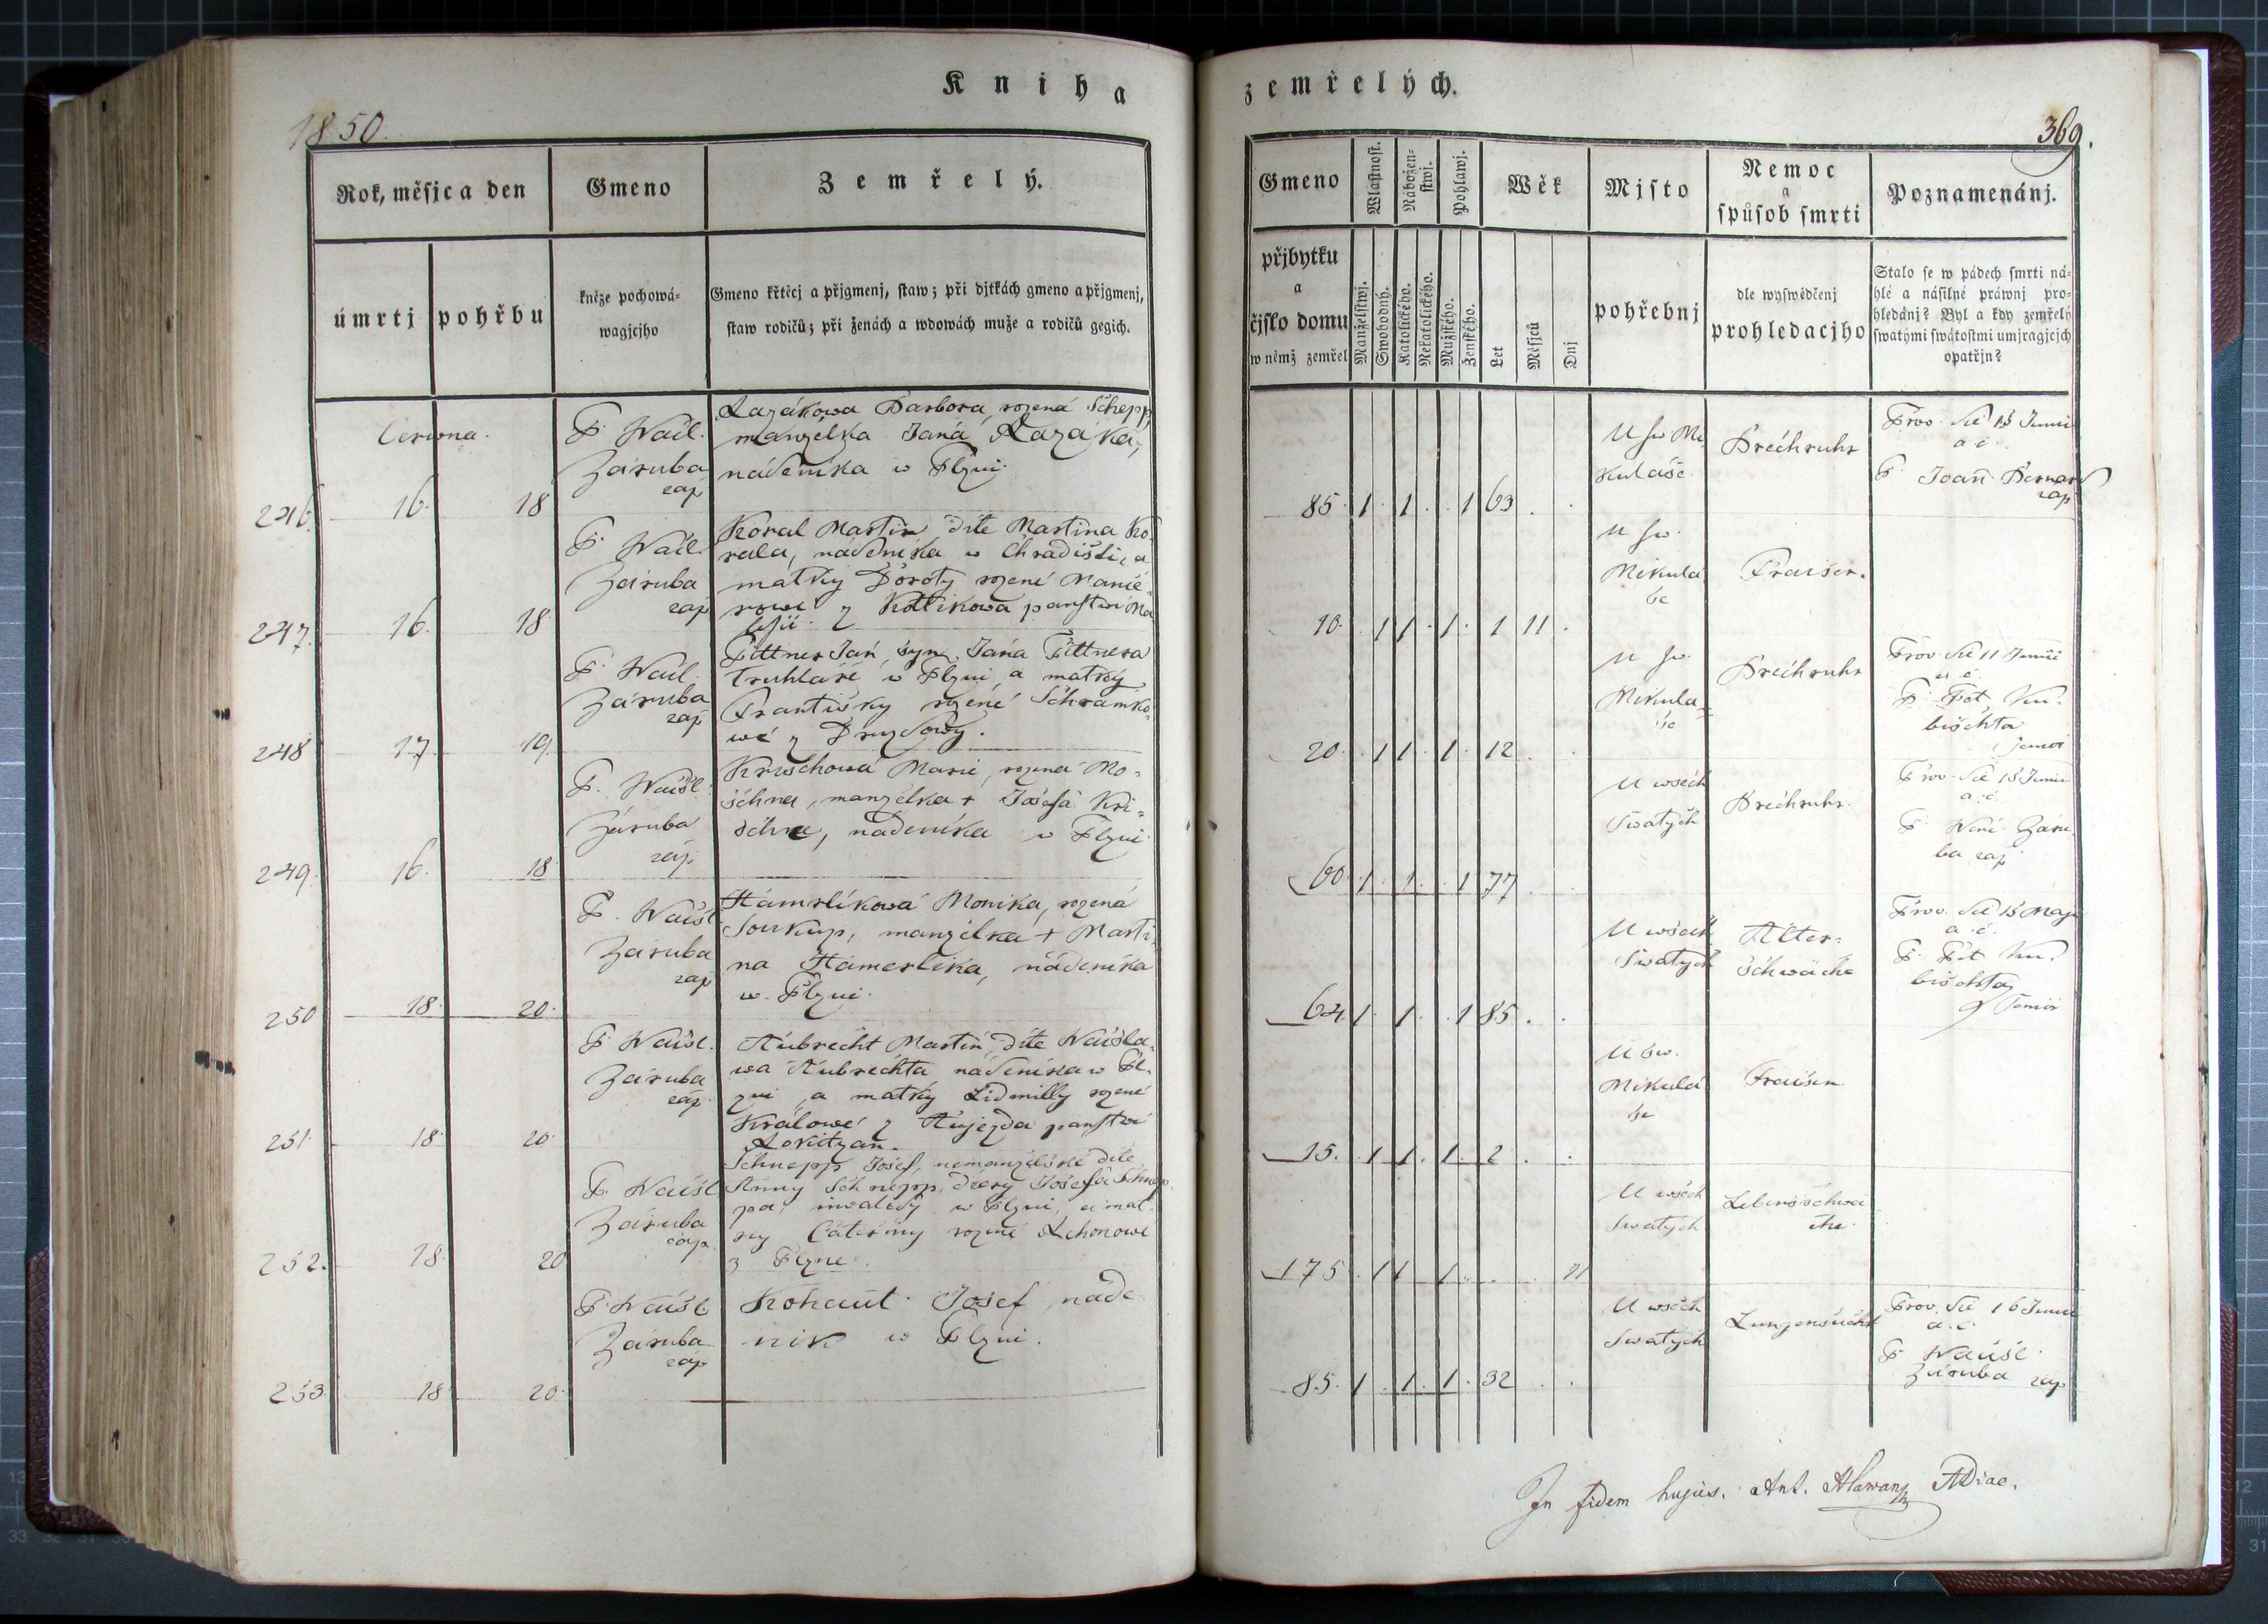 Kniha
zemřelých.
1850.
369.
Rok, měsjc a den
Gmeno
Zemřelý.
úmrtj
pohřbu
kněze pochowá-
wagjcjho
Gmeno křtěcj a přjgmenj, staw; při djtkách gmeno a přjgmenj,
staw rodičů; při ženách a wdowách muže a rodičů gegich.
Gmeno
přjbytku
a
čjslo domu
w němž zemřel
Wlastnost.
Manželstwj.
Swobodný.
Nábožen-
stwj.
Katolického.
Nekatolického.
Pohlawj.
Mužského.
Ženského.
Wěk
Let
Měsjců
Dnj
Mjsto
pohřebnj
Nemoc
a
spůsob smrti
dle wyswědčenj
prohledacjho
Poznamenánj.
Stalo se w pádech smrti ná-
hlé a násilné práwnj pro-
hledánj? Byl a kdy zemřelý
swatými swátostmi umjragjcjch
opatřjn?
Června.
246. 16. 18
P. Wácl.
Záruba
zap
Lazákowa Barbora, rozená Schepp,
manzelka Jana Lazáka,
nádeníka w Plzni.
85. 1 1 1 63
U sw. Mi
kuláše
Brechruhr
Prov. die 15 Junii
a. c.
P. Joañ Bernard
zap
247. 16. 18
P. Wácl.
Záruba
zap
Koral Martin dite Martina Ko
rala, nádeníka w Chradišti, a
matky Doroty rozené
z panstwi
10. 1 1 1 1 11
U sw.
Mikulá
še
Fraisen.
248 17. 19.
P. Wácl.
Záruba
zap
Pittner Jan, syn Jána Pittnera
truhláře w Plzni a matky
Františky rozené Schramko
wé z
20. 1 1 1 12
U sw.
Mikulá
še
Brechruhr
Prov. die 11 Junii
a. c.
P. Pet. Ku
bischta
senior
249. 16. 18
P. Wácsl.
Záruba
zap
Kruschowá Marie, rozená Mo-
schna, manzelka + Josefa Kri-
schne, nádenika w Plzni
60. 1 1 1 77
U wsech
Swatých
Brechruhr.
Prov. die 15 Junii
a. c.
P. Záru
ba zap
250 18. 20.
P. Wácsl
Záruba
zap
Hámrlíkowá Monika, rozená
Soukup, manzelka + Marti
na Hámerlika, nádenika
w Plzni.
64 1 1 1 85
U wsech
Swatých
Alters
schwäche
Prov. die 15 Maji
a. c.
P. Pet Ku
bischta
Senior
251. 18. 20.
P. Wácsl.
Záruba
zap.
Aubrecht Martin, dite Wácsla-
wa Aubrechta nádenika w Pl-
zni, a matky Lidmilly rozené
Králowé z Aujezda panstwi
Rokitzan.
15. 1 1 1 2
U sw.
Mikulá
še
Fraisen
252. 18. 20
P. Wácsl
Záruba
zap.
Schnepp Josef, nemanzelské dite
Anny Schnepp, dcery Josefa Schnep
pa, inwalidy w Plzni, a mat
ky Cáteriny rozené
z Plzne.
175 1 1 1 11
U wsech
Swatých
Lebensschwä
che.
253. 18. 20.
P. Wácsl
Záruba
zap
Kohaut Josef, náde
nik w Plzni.
85. 1 1 1 32
U wsech
Swatých
Lungensucht
Prov. die 16 Junii
a. c.
P. Wácsl.
Záruba zap
In fidem hujus. Ant. Hlawan ADiac.